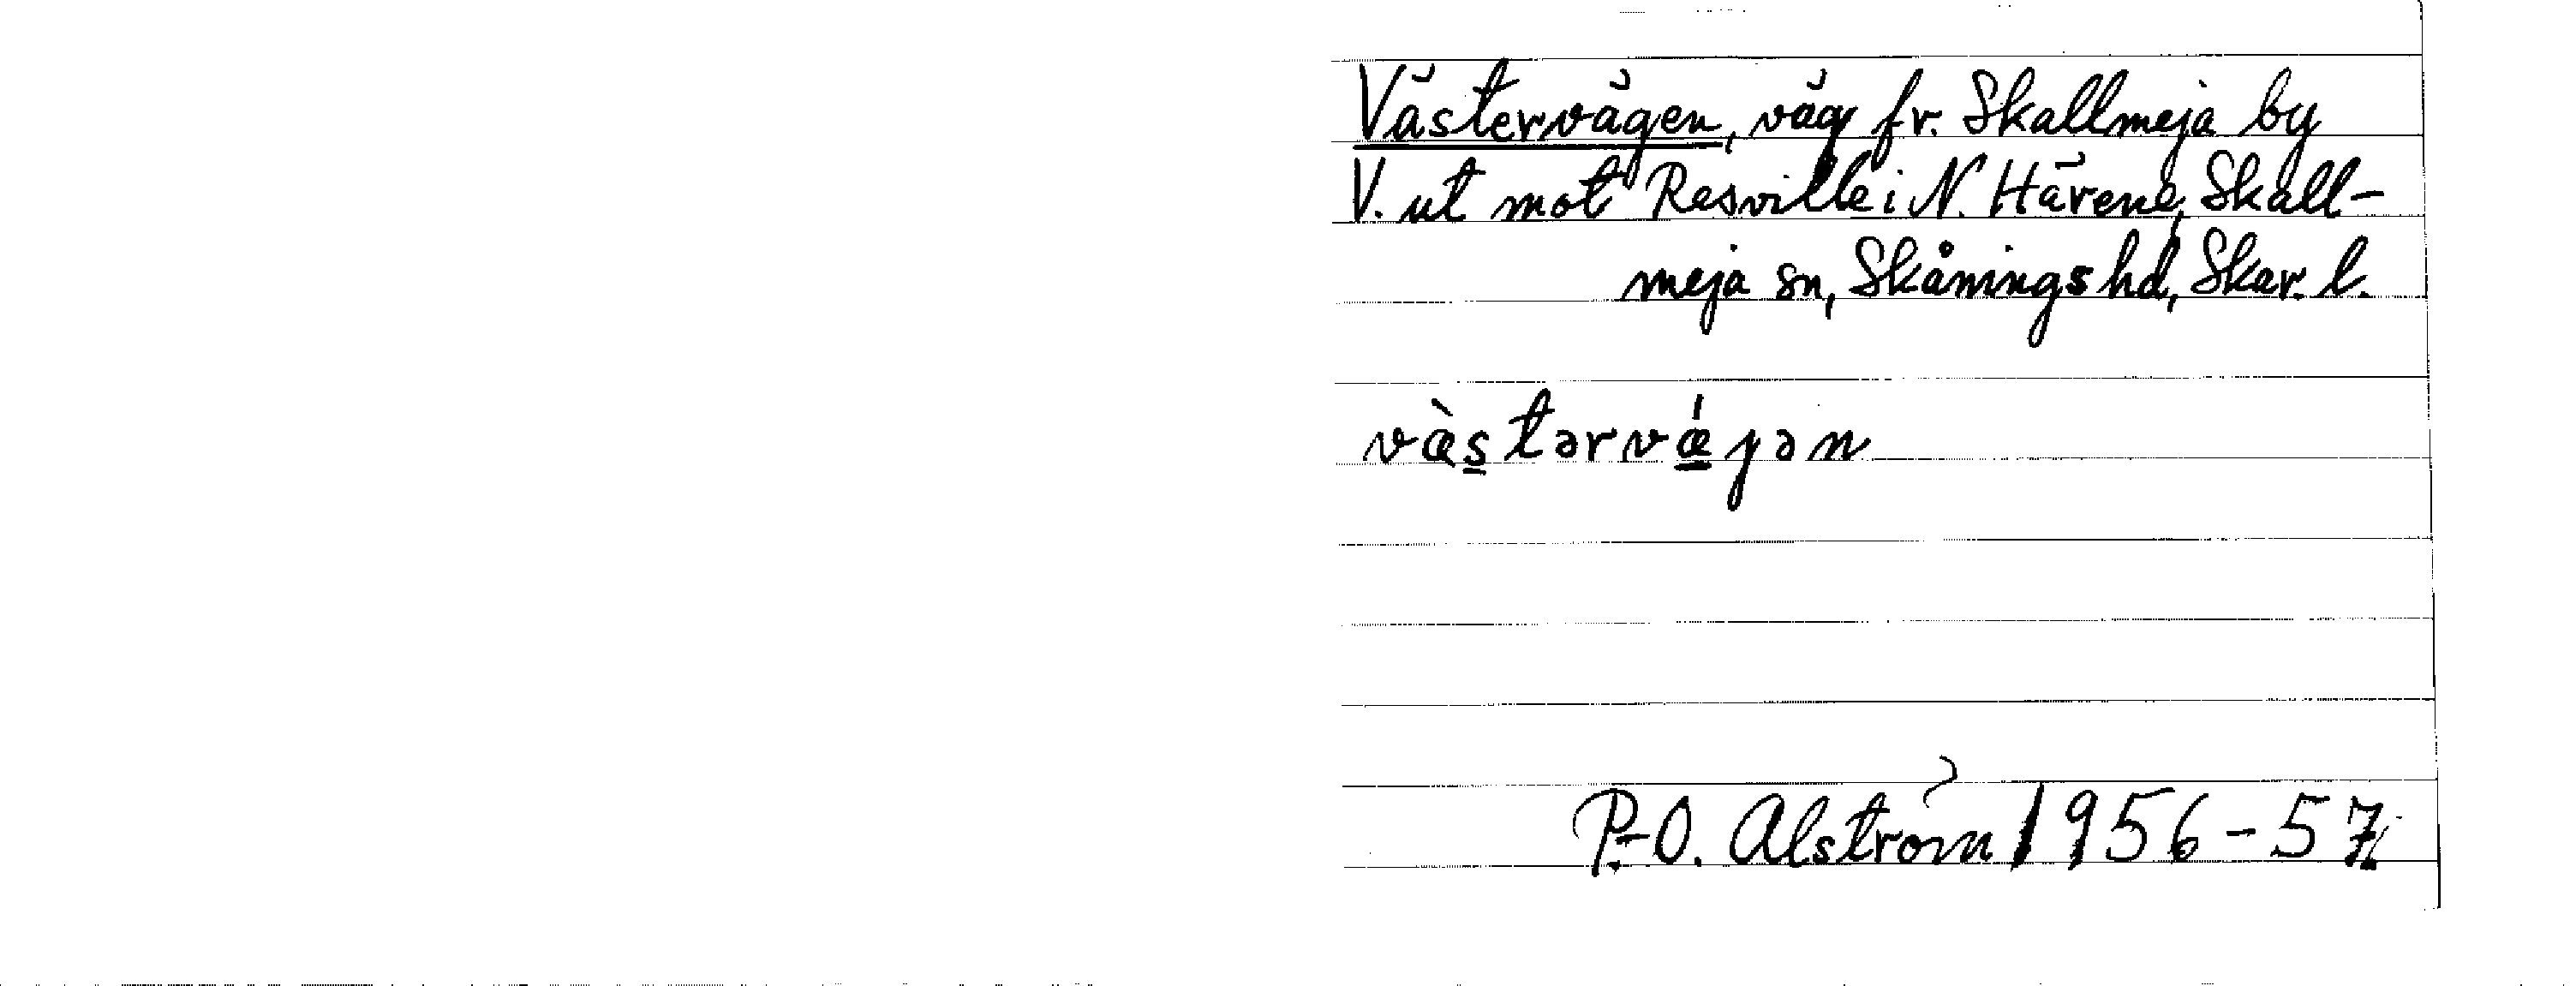 Västervägen, väg fr. Skallmeja by
V. ut mot Resville i N. Härene, Skall-
meja sn, Skånings hd, Skar. l.
væ̀stərvǽjən
P.-O. Alström 1956-57